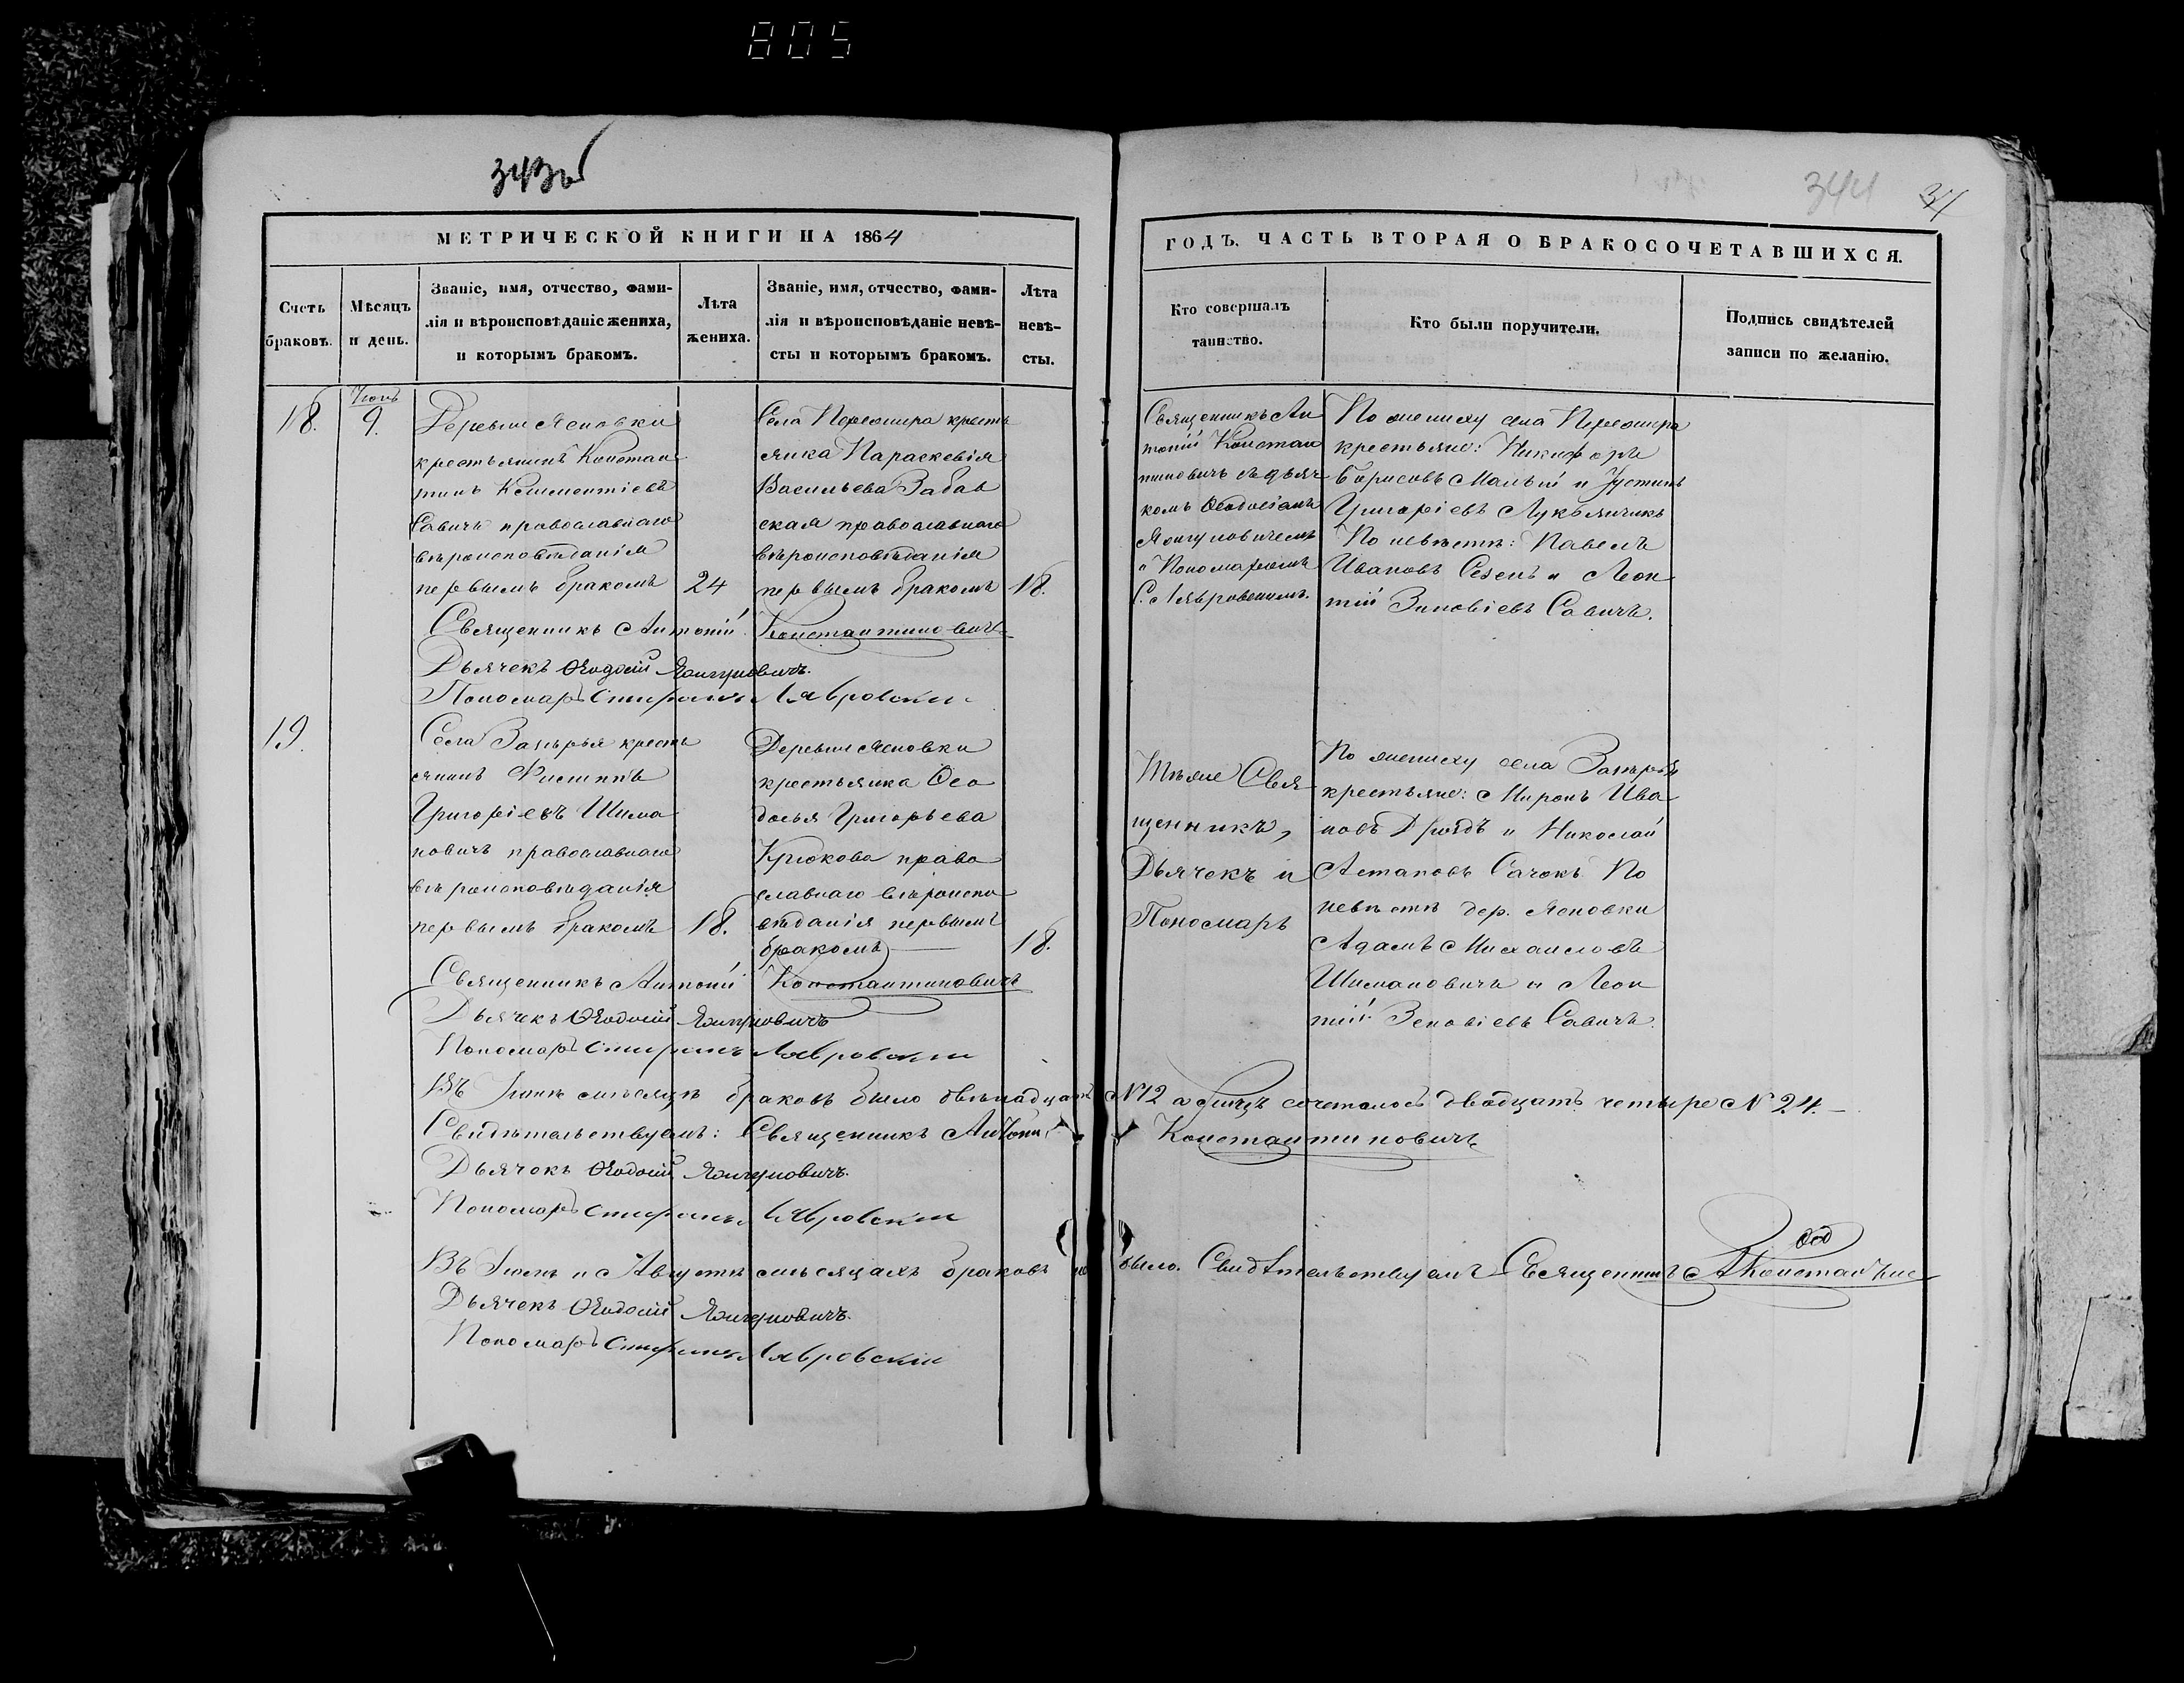 805
343об
344
37
МЕТРИЧЕСКОЙ КНИГИ НА 1864
ГОДЪ. ЧАСТЬ ВТОРАЯ О БРАКОСОЧЕТАВШИХСЯ.
Счетъ
браковъ.
Мѣсяцъ
и день.
Званіе, имя, отчество, фами-
лія и вѣроисповѣданіе жениха,
и которымъ бракомъ.
Лѣта
жениха.
Званіе, имя, отчество, фами-
лія и вѣроисповѣданіе невѣ-
сты и которымъ бракомъ.
Лѣта
невѣ-
сты.
Кто совершалъ
таинство.
Кто были поручители.
Подпись свидѣтелей
записи по желанію.
18.
9.
Деревни Ясновки
крестьянинъ Констан
тинъ Климентіевъ
Савичъ православнаго
вѣроисповѣданія
первымъ бракомъ
24
Села крестъ
янка Параскевія
Васильева
православнаго
вѣроисповѣданія
первымъ бракомъ
18.
Священникъ Ан
тоній Констан
тиновичъ съ дьяч
комъ Ѳеодосіемъ
и Пономаремъ
По жениху села
крестьяне: Никифоръ
Борисовъ Малый и Устинъ
Григоріевъ Лукьянчикъ
По невѣстѣ: Павелъ
Ивановъ и Леон
тій Зиновіевъ Савичъ.
Священникъ Антоній Константиновичъ
Дьячекъ Ѳеодосій
Пономарь
19.
Села Запрья кресть
янинъ Филиппъ
Григоріевъ Шима
новичъ православнаго
вѣроисповѣданія
первымъ бракомъ
18.
Деревни Ясновки
крестьянка Ѳео
досья Григорьева
Крюкова право
славнаго вѣроиспо
вѣданія первымъ
бракомъ
18.
Тѣже Свя
щенникъ,
Дьячекъ и
Пономарь
По жениху села
крестьяне: Миронъ Ива
новъ и Николай
Сачокъ По
невѣстѣ дер. Ясновки
Адамъ Михаиловъ
Шимановичъ и Леон
тій Зеновіевъ Савичъ.
Священникъ Антоній Константиновичъ
Дьячекъ Ѳеодосій
Пономарь
Въ Іюнѣ мѣсяцѣ браковъ было двѣнадцать №12 а лицъ сочеталось двадцать четыре № 24.
Свидѣтельствуемъ: Священникъ Антоній Константиновичъ
Дьячокъ Ѳеодосій
Пономарь
Въ Іюлѣ и Августѣ мѣсяцахъ браковъ не было. Свидѣтельствуемъ Священникъ А Константинов
Дьячекъ Ѳеодосій
Пономарь